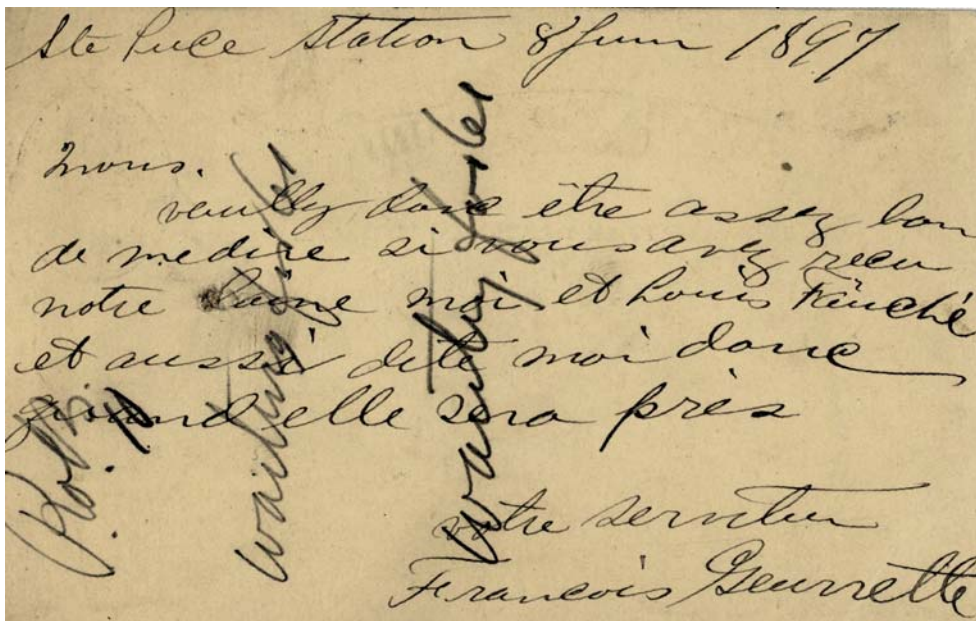 Ste Luce Station 8 Juin 1897
veuilly donc être assez bon
de medire si vous avez recu
notre laine moi et Louis
et aussi dite moi donc
quand elle sera près
votre serviteur
Francois Geurrette
waiting
waiting